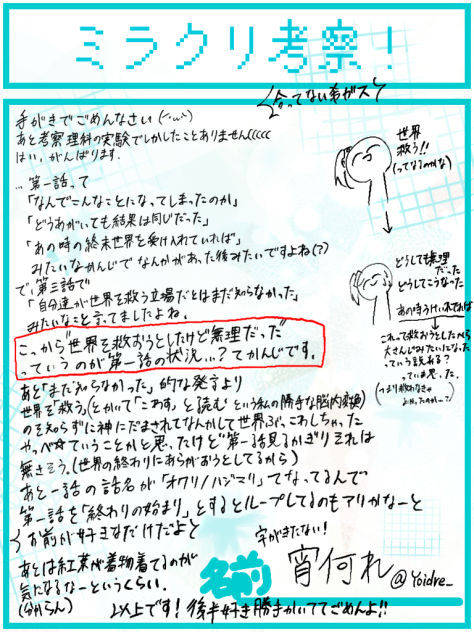 ミラクリ考察！
<合ってない気がス>
手がきでごめんなさい(・ω・`)
あと考察理科の実験でしかしたことありません(((((
はい、がんばります。
…第一話って
「なんでこんなことになってしまったのか」
「どうあがいても結果は同じだった」
「あの時の終末世界を受け入れていれば」
みたいなかんじでなんかがあった後みたいですよね(?)
で、第三話で
「自分達が世界を救う立場だとはまだ知らなかった」
みたいなこと言ってましたよね。
こっから"世界を救おうとしたけど無理だった"
っていうのが第一話の状況…？てかんじです。
あと「まだ知らなかった」的な発言より
世界を救う、(とかいて「こわす」と読むという私の勝手な脳内変換)
のを知らずに神にだまされてなんかして世界ぶっこわしちゃった
やっべ☆ていうことかと思ったけど第一話見るかぎりそれは
無さそう。(世界の終わりにあらがおうとしてるから)
あと一話の話名が「オワリノハジマリ」てなってるんで
第一話を「終わりの始まり」とするとループしてるのもアリかなーと
<お前が好きなだけだよ>
あとは紅葉が着物着てるのが
気になるなーというくらい。
(分からん)
以上です！後半好き勝手かいててごめんよ!!
世界
救う!!
(ってなるのかな)
どうしても無理
だった
どうしてこうなった
あの時うけいれてれば
これって救おうとしたから
大さんじみたいになった
っていう説ある？
っていま思った。
字がきたない！
名前
宵何れ
@Yoidre_